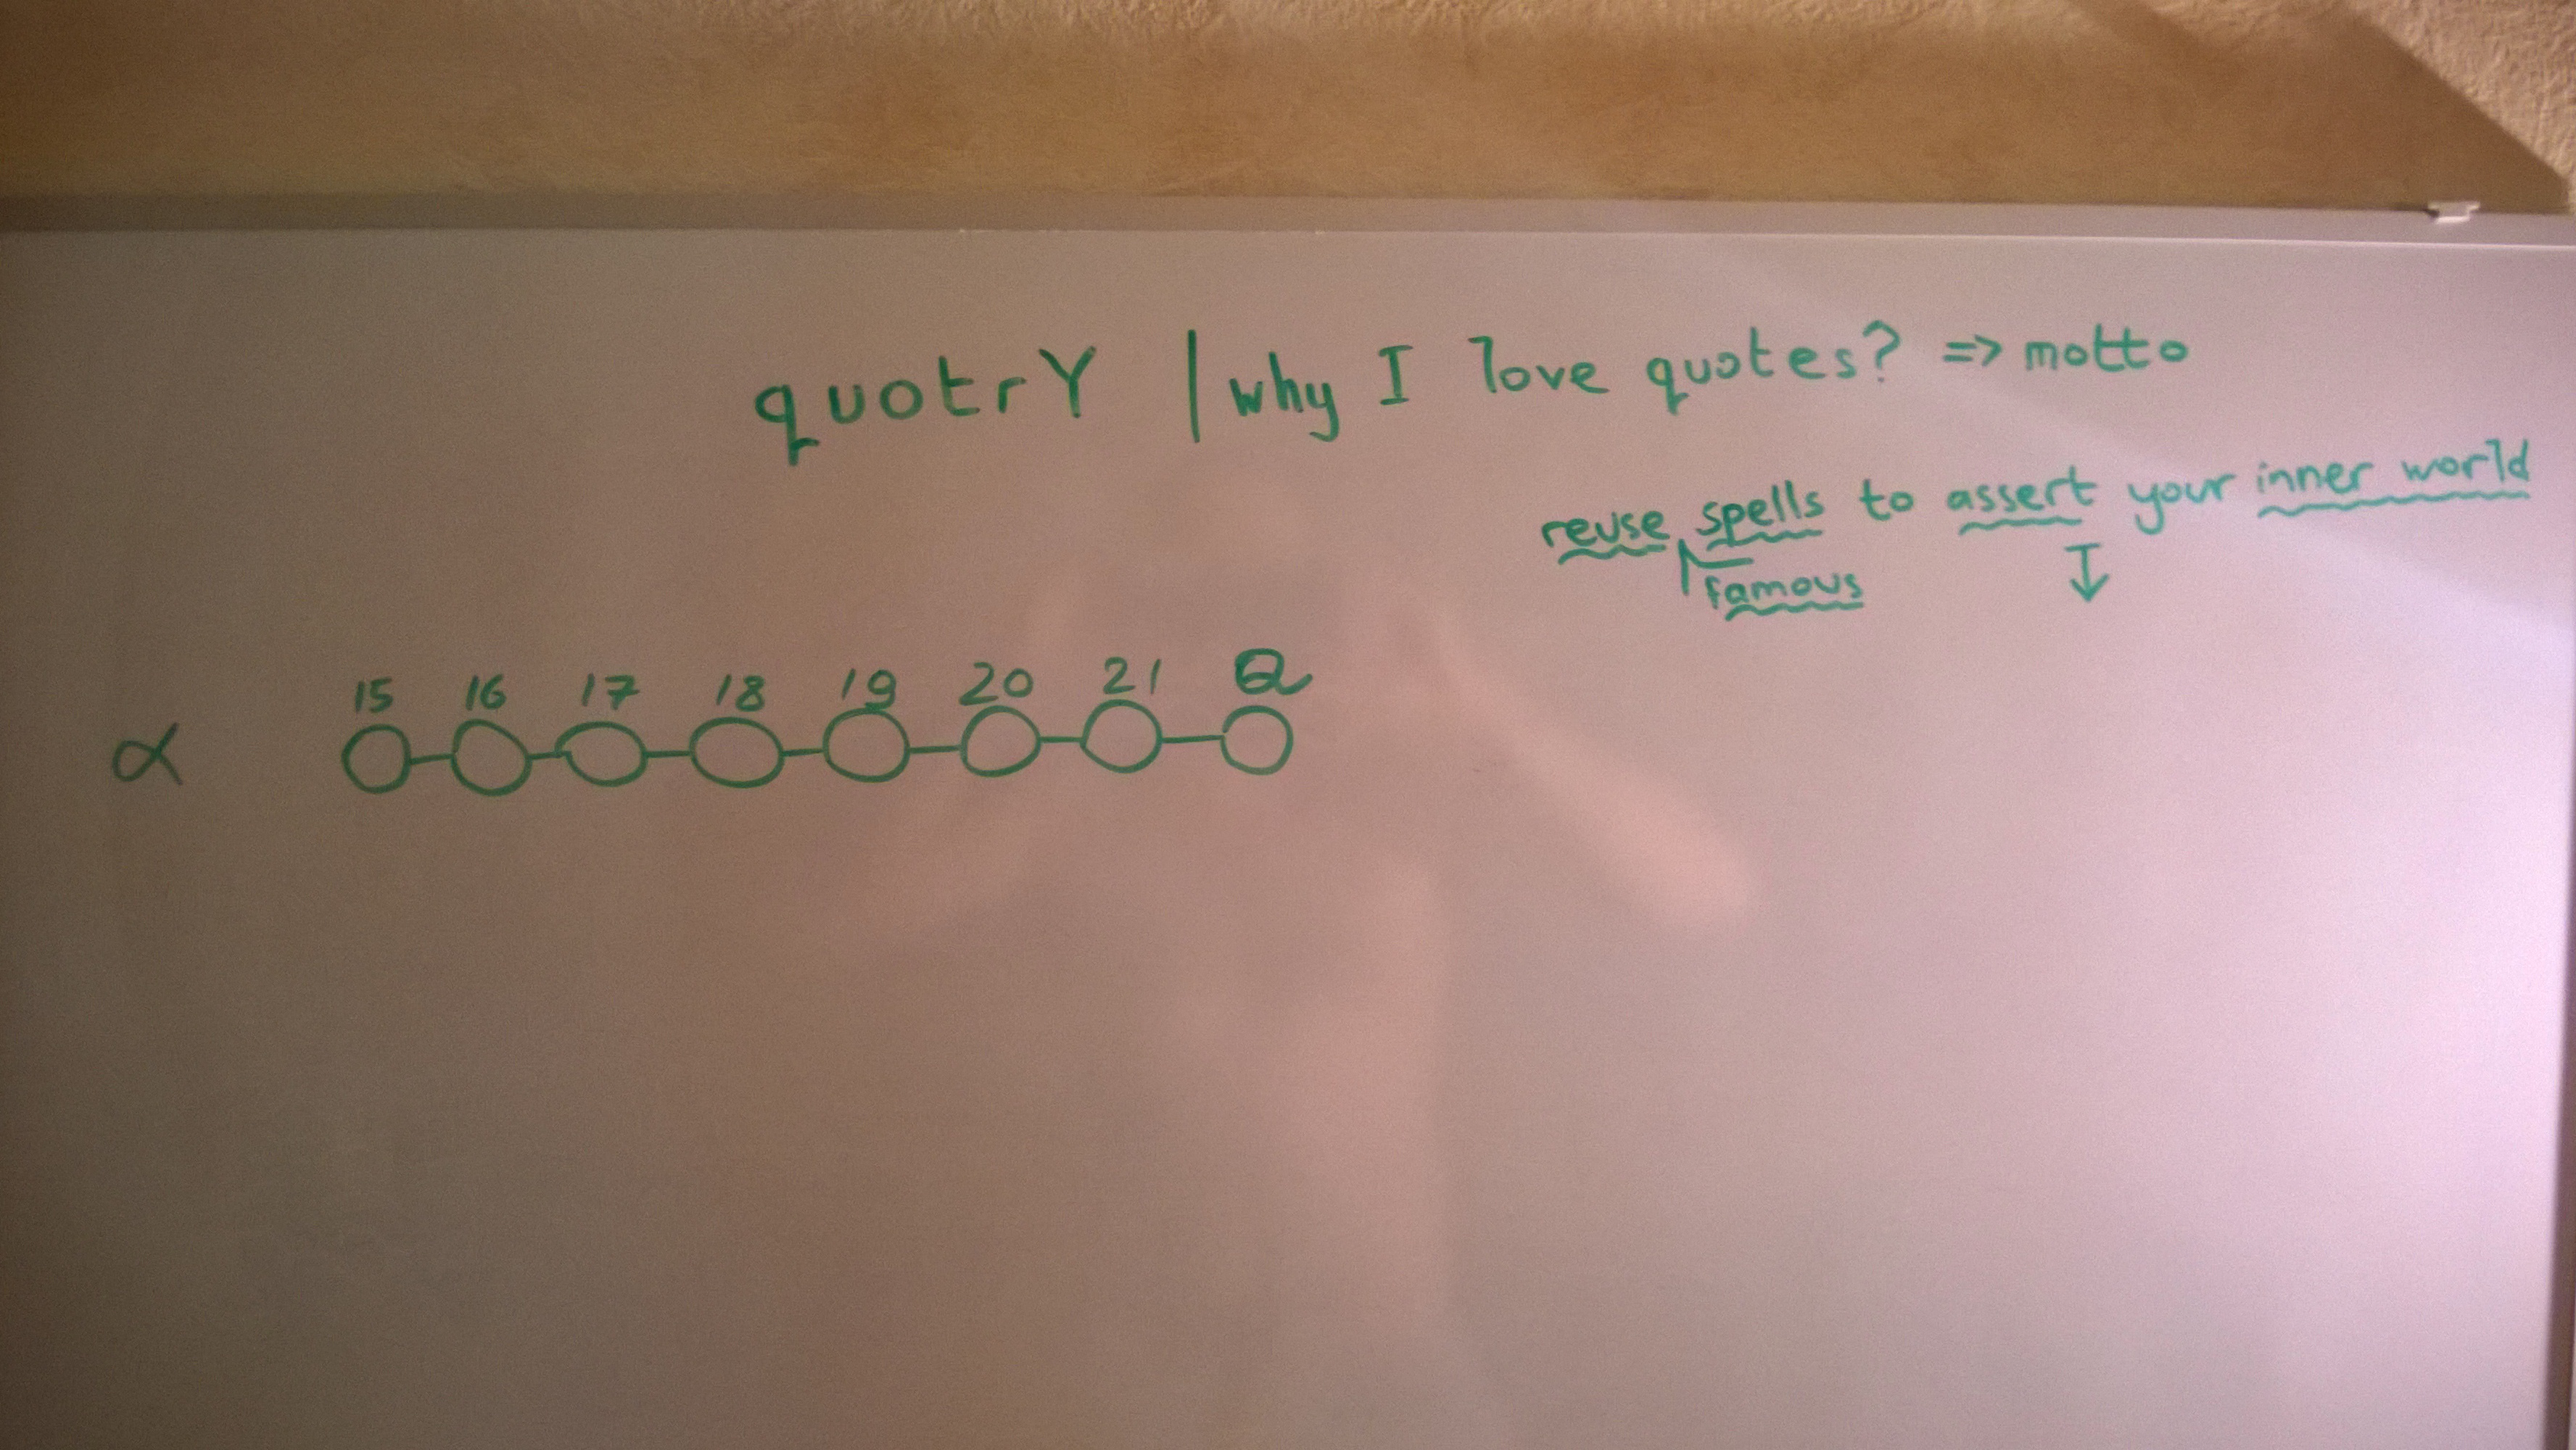 quotrY | why I love quotes? => motto
reuse spells to assert your inner world
famous
15 16 17 18 19 20 21 Q
α